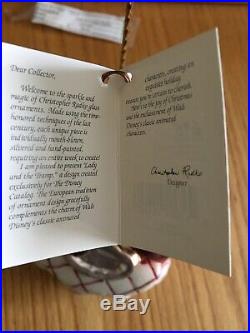 Dear Collector,
Welcome to the sparkle and
magic of Christopher Radko glass
ornaments. Made using the time-
honored techniques of the last
century, each unique piece is
individually mouth-blown,
silvered and hand-painted,
requiring an entire week to create!
We are pleased to present "Lady
and the Tramp," a design
created exclusively for The Disney
Catalog. The European tradition
of ornament design gracefully
complements the charm of Walt
Disney's classic animated
characters, creating an
exquisite holiday
treasure you're certain to cherish.
Here's to the joy of Christmas
and the enchantment of Walt
Disney's classic animated
characters.
Christopher Radko
Designer